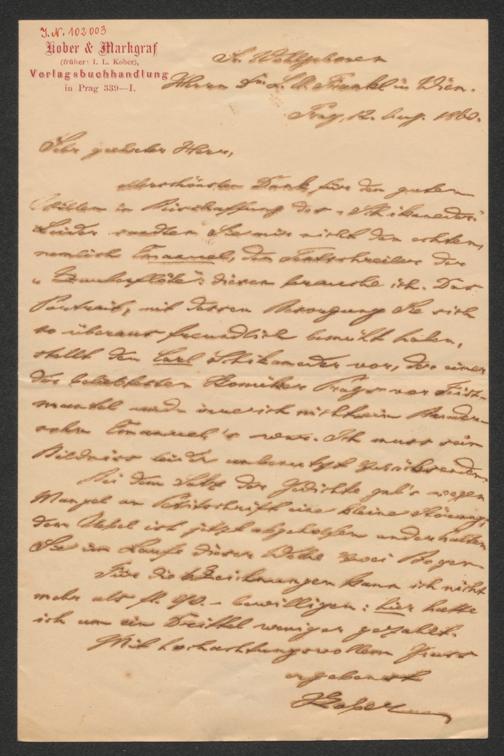 J. N. 102003
Kober & Markgraf
(früher: I. L. Kober),
Verlagsbuchhandlung
in Prag 339—I.
Sr. Wohlgeboren
Herrn Dr. L. A. Frankl in Wien.
Prag, 12. Aug. 1880.
Sehr geehrter Herr,
schönsten Dank für den guten
Willen in Beischaffung des „Schikaneder“.
Leider sandten Sie mir nicht den echten,
nemlich Emanuel, den Textschreiber der
„Zauberflöte“; diesen brauche ich. Das
Portrait, mit dessen Besorgung Sie sich
so überaus freundlich bemüht haben,
stellt den Carl Schikaneder vor, der einer
der beliebtesten Komiker Prags vor Feist-
mantel und irre ich nicht ein Bruder-
sohn Emanuel's war. Ich muss sein
Bildniss leider unbenutzt zurücksenden.
Bei dem Satze der Gedichte gab's wegen
Mangel an Schrift eine kleine Störung;
dem Uebel ist jetzt abgeholfen und erhalten
Sie im Laufe dieser Woche zwei Bogen.
Für die Zeichnungen kann ich nicht
mehr als fl. 90.– bewilligen; hier hatte
ich um ein Drittel weniger gezahlt.
Mit hochachtungsvollem Gruss
ergebenst
Kober